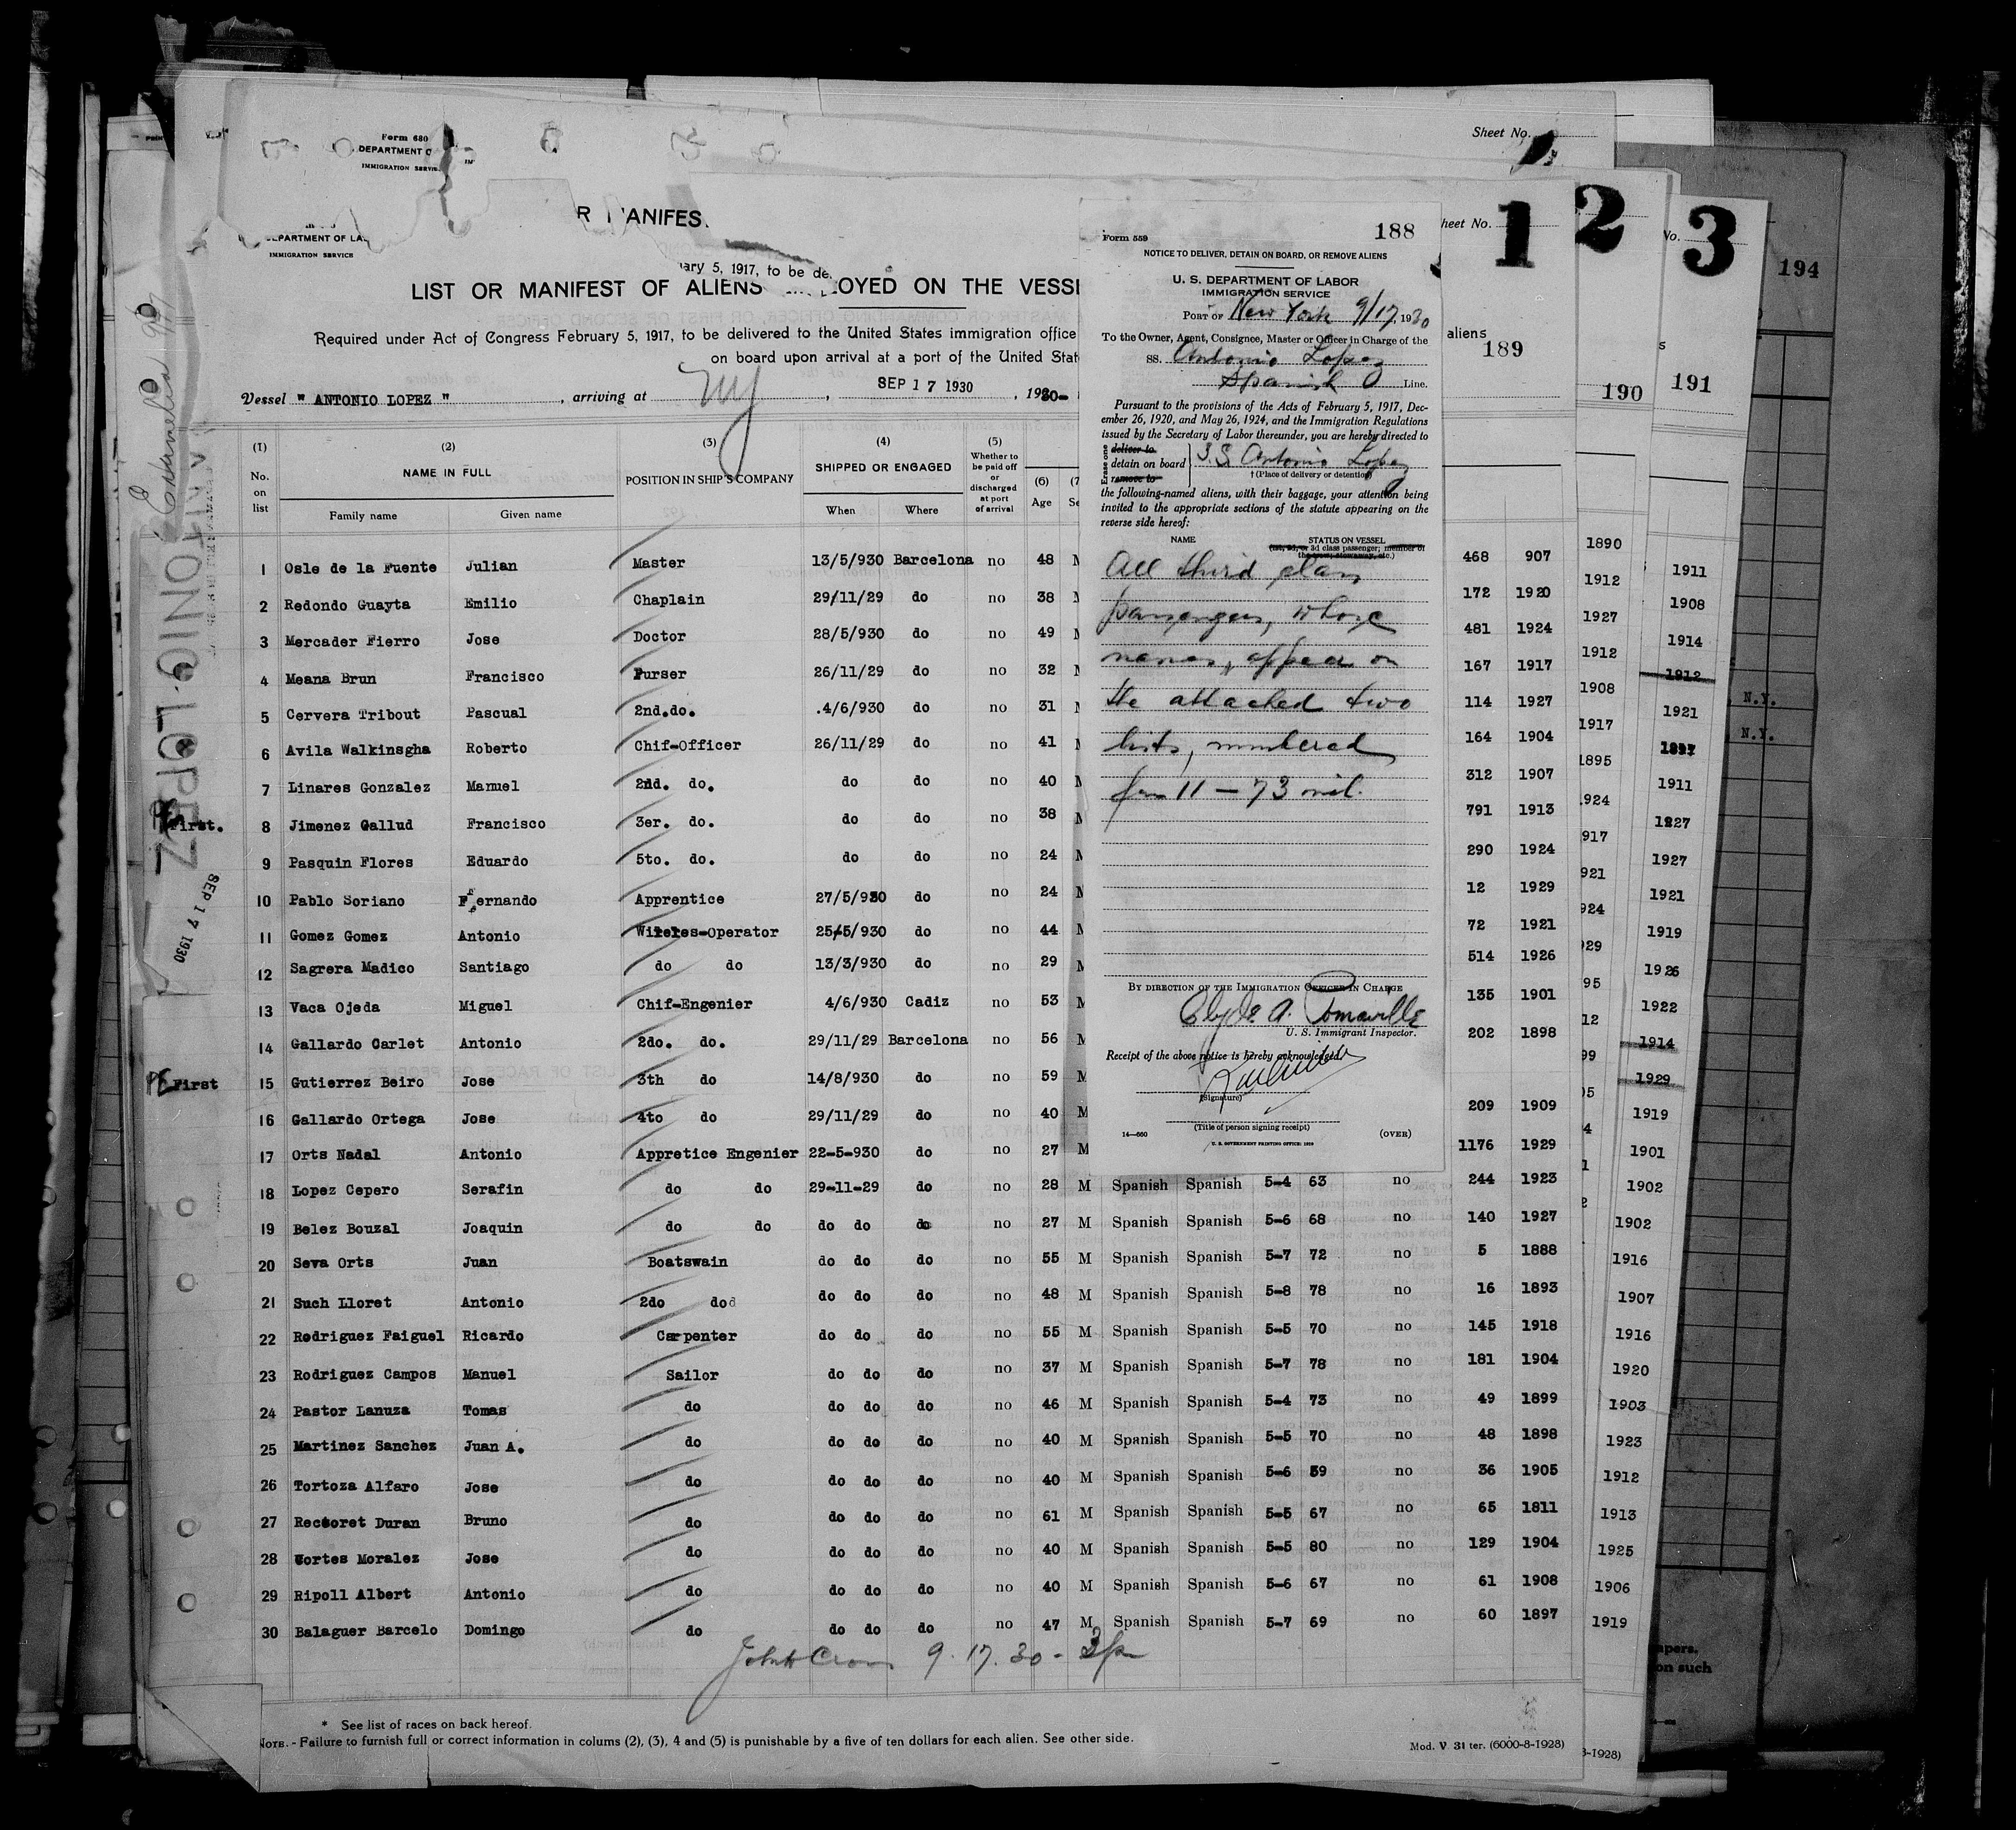 Form 680
DEPARTMENT O
IMMIGRATION SERVI
Sheet No.
R MANIFES
DEPARTMENT OF LA
IMMIGRATION SERVICE
ary 5, 1917, to be de
LIST OR MANIFEST OF ALIENS LOYED ON THE VESS
Required under Act of Congress February 5, 1917, to be delivered to the United States immigration office
on board upon arrival at a port of the United Stat
Vessel " ANTONIO LOPEZ ", arriving at NY, SEP 17 1930, 1930-
(1) (2) (3) (4) (5) (6) (7
No. on list NAME IN FULL POSITION IN SHIP'S COMPANY SHIPPED OR ENGAGED Whether to be paid off or discharged at port of arrival Age Se
Family name Given name When Where
1 Osle de la Fuente Julian Master 13/5/930 Barcelona no 48 M 468 907
2 Redondo Guayta Emilio Chaplain 29/11/29 do no 38 M 172 1920
3 Mercader Fierro Jose Doctor 28/5/930 do no 49 M 481 1924
4 Meana Brun Francisco Purser 26/11/29 do no 32 M 167 1917
5 Cervera Tribout Pascual 2nd.do. .4/6/930 do no 31 M 114 1927
6 Avila Walkinsgha Roberto Chif-Officer 26/11/29 do no 41 M 164 1904
7 Linares Gonzalez Manuel 2nd. do. do do no 40 M 312 1907
First. 8 Jimenez Gallud Francisco 3er. do. do do no 38 M 791 1913
9 Pasquin Flores Eduardo 5to. do. do do no 24 M 290 1924
10 Pablo Soriano Fernando Apprentice 27/5/930 do no 24 12 1929
11 Gomez Gomez Antonio Wireles-Operator 25/5/930 do no 44 M 72 1921
12 Sagrera Madico Santiago do do 13/3/930 do no 29 M 514 1926
13 Vaca Ojeda Miguel Chif-Engenier 4/6/930 Cadiz no 53 M 135 1901
14 Gallardo Carlet Antonio 2do. do. 29/11/29 Barcelona no 56 M 202 1898
First 15 Gutierrez Beiro Jose 3th do 14/8/930 do no 59 M
16 Gallardo Ortega Jose 4to do 29/11/29 do no 40 M 209 1909
17 Orts Nadal Antonio Appretice Engenier 22-5-930 do no 27 M 1176 1929
18 Lopez Cepero Serafin do do 29-11-29 do no 28 M Spanish Spanish 5-4 63 no 244 1923
19 Belez Bouzal Joaquin do do do do do no 27 M Spanish Spanish 5-6 68 no 140 1927
20 Seva Orts Juan Boatswain do do do no 55 M Spanish Spanish 5-7 72 no 5 1888
21 Such Lloret Antonio 2do dod do do do no 48 M Spanish Spanish 5-8 78 no 16 1893
22 Rodriguez Faiguel Ricardo Carpenter do do do no 55 M Spanish Spanish 5-5 70 no 145 1918
23 Rodriguez Campos Manuel Sailor do do do no 37 M Spanish Spanish 5-7 78 no 181 1904
24 Pastor Lanuza Tomas do do do do no 46 M Spanish Spanish 5-4 73 no 49 1899
25 Martinez Sanchez Juan A. do do do do no 40 M Spanish Spanish 5-5 70 no 48 1898
26 Tortoza Alfaro Jose do do do do no 40 M Spanish Spanish 5-6 59 no 36 1905
27 Rectoret Duran Bruno do do do do no 61 M Spanish Spanish 5-5 67 no 65 1811
28 Cortes Moralez Jose do do do do no 40 M Spanish Spanish 5-5 80 no 129 1904
29 Ripoll Albert Antonio do do do do no 40 M Spanish Spanish 5-6 67 no 61 1908
30 Balaguer Barcelo Domingo do do do do no 47 M Spanish Spanish 5-7 69 no 60 1897
9.17.30 -
* See list of races on back hereof.
NOTE. - Failure to furnish full or correct information in colums (2), (3), 4 and (5) is punishable by a five of ten dollars for each alien. See other side.
Mod. V 31 ter. (6000-8-1928)
3-1928)
ANTONIO LOPEZ
SEP 17 1930
188
Form 559
NOTICE TO DELIVER, DETAIN ON BOARD, OR REMOVE ALIENS
U. S. DEPARTMENT OF LABOR
IMMIGRATION SERVICE
PORT OF New York 9/17, 1930
To the Owner, Agent, Consignee, Master or Officer in Charge of the
SS. Antonio Lopez
Spanish Line.
Pursuant to the provisions of the Acts of February 5, 1917, Dec-
ember 26, 1920, and May 26, 1924, and the Immigration Regulations
issued by the Secretary of Labor thereunder, you are hereby directed to
Erase one
deliver to
detain on board S.S. Antonio Lopez
remove to
† (Place of delivery or detention)
the following-named aliens, with their baggage, your attention being
invited to the appropriate sections of the statute appearing on the
reverse side hereof:
NAME STATUS ON VESSEL
(1st, 2d, or 3d class passenger; member of
the crew; stowaway, etc.)
All third class
passengers, whose
names, appear on
the attached two
lists, numbered
from 11 - 73 incl.
BY DIRECTION OF THE IMMIGRATION OFFICER IN CHARGE
Clyde A. Pomaville
U. S. Immigrant Inspector.
Receipt of the above notice is hereby acknowledged
(Signature)
(Title of person signing receipt)
14-660 (OVER)
U. S. GOVERNMENT PRINTING OFFICE: 1929
heet No. 1
aliens
189
2
190
1890
1912
1927
1912
1908
1917
1895
1924
917
921
924
929
95
12
99
No. 3
191
1911
1908
1914
1912
1921
1911
1927
1927
1921
1919
1926
1922
1914
1929
1919
1901
1902
1902
1916
1907
1916
1920
1903
1923
1912
1913
1925
1906
1919
194
N.Y.
N.Y.
apers,
on such